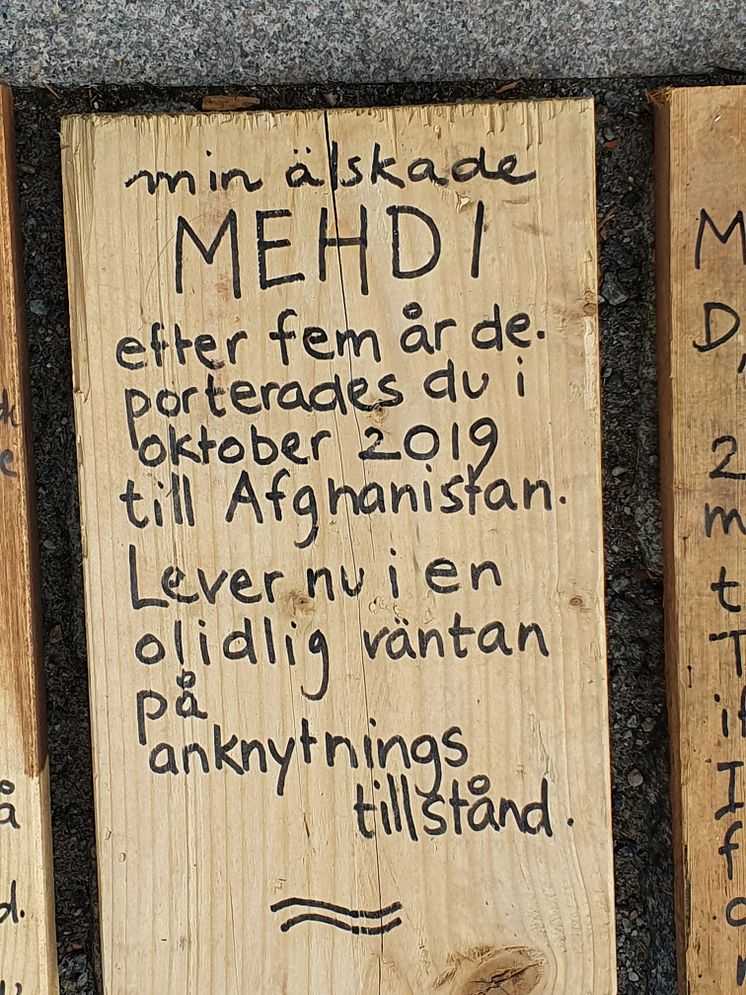 min älskade
MEHDI
efter fem år de.
porterades du i
oktober 2019
till Afghanistan.
Lever nu i en
olidlig väntan
på
anknytnings
tillstånd.